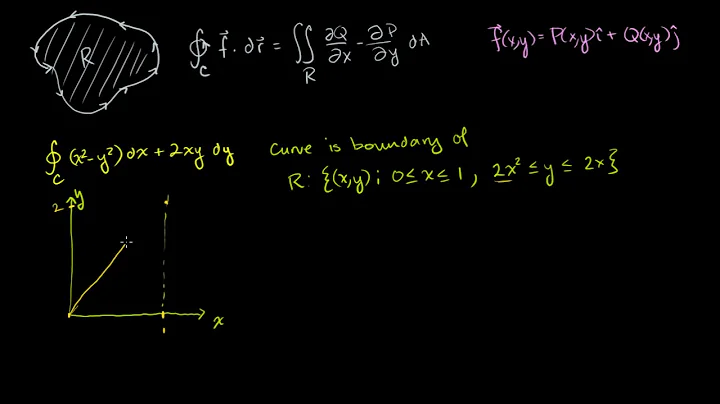 R ∮_C f⃗ · dr⃗ = ∬_R ∂Q/∂x − ∂P/∂y dA f⃗(x,y) = P(x,y) î + Q(x,y) ĵ
∮_C (x² − y²) dx + 2xy dy curve is boundary of
R: {(x,y); 0 ≤ x ≤ 1, 2x² ≤ y ≤ 2x}
2 y
x
1